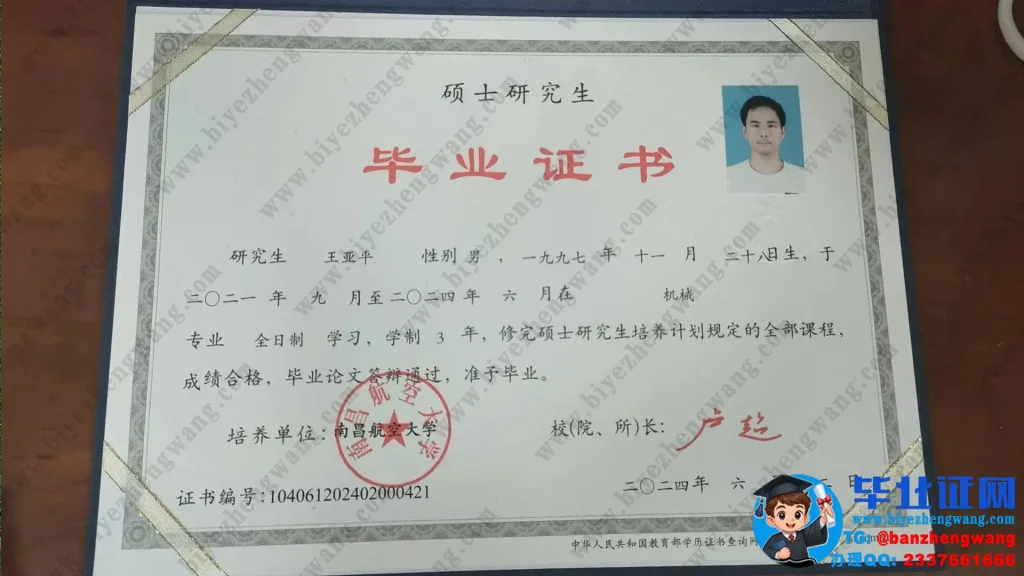 硕士研究生
毕业证书
研究生 王亚平 性别 男 ，一九九七 年 十一 月 二十八日生，于
二〇二一 年 九 月至二〇二四 年 六 月在 机械
专业 全日制 学习，学制 3 年，修完硕士研究生培养计划规定的全部课程，
成绩合格，毕业论文答辩通过，准予毕业。
培养单位：南昌航空大学
南昌航空大学
校(院、所)长：
卢超
证书编号：104061202402000421
二〇二四 年 六 二 日
中华人民共和国教育部学历证书查询网
毕业证网
www.biyezhengwang.com
TG: @banzhengwang
办理QQ: 2337661666
www.biyezhengwang.com